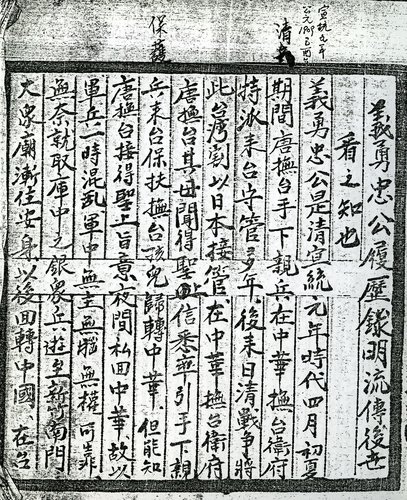 宣統元年
清兵
保護
義勇忠公履歷錄明流傳後世
看之知也
義勇忠公是清宣統元年時代四月初夏
期間唐撫台手下親兵在中華撫台衛府
特派來台守管多年、後來日清戰爭將
此台灣割以日本接管、在中華撫台衛府
唐撫台其母聞得聖上信悉並引手下親
兵來台保扶撫台該兒歸轉中華、但能知
唐撫台接得聖上旨意、夜間私回中華、故以
軍兵一時混亂、軍中無主無賴無權可靠
無奈就取庫中之銀眾兵遊多新竹南門
大眾廟漸住安身以後回轉中國、在名